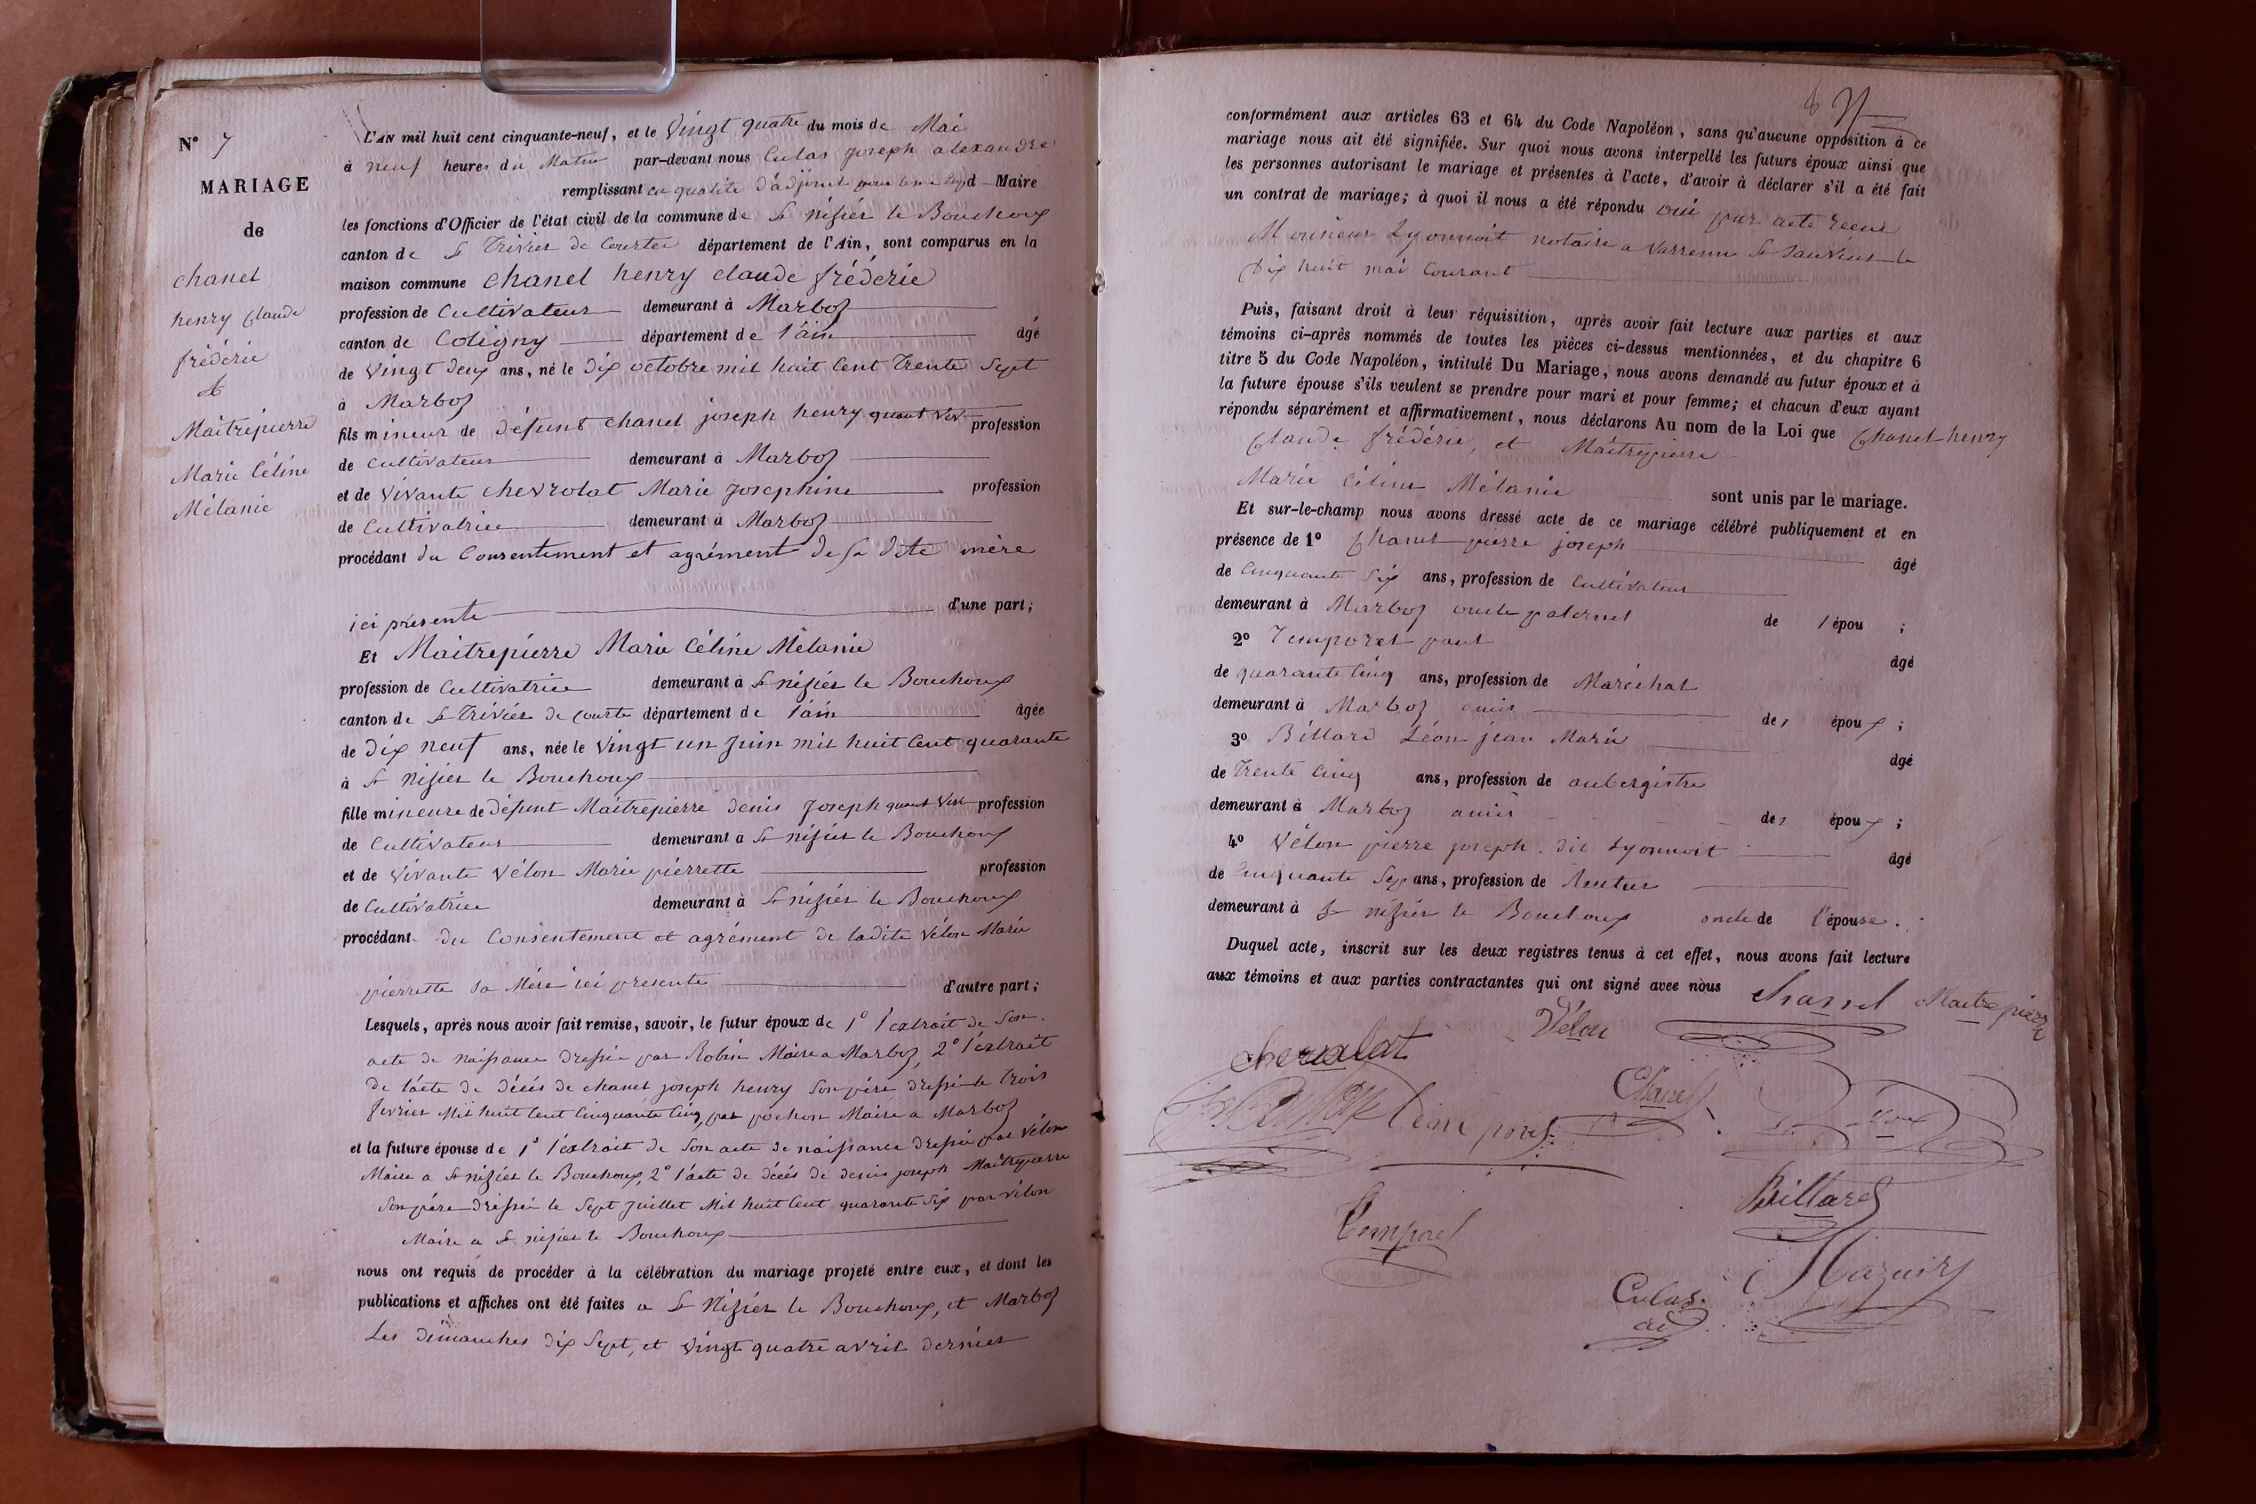 N° 7
MARIAGE
de
chanel
henry Claude
fréderic
&
Maitrepierre
Marie Céline
Mélanie
L'AN mil huit cent cinquante-neuf, et le Vingt quatre du mois de Mai
à neuf heures du Matin par-devant nous Culas Joseph alexandre
remplissant en qualité d'adjoint Maire
les fonctions d'Officier de l'état civil de la commune de St nizier le Bouchoux
canton de St Trivier de Courtes département de l'Ain, sont comparus en la
maison commune chanel henry claude fréderic
profession de Cultivateur demeurant à Marboz
canton de Coligny département de l'ain âgé
de Vingt deux ans, né le dix octobre mil huit Cent Trente Sept
à Marboz
fils mineur de défunt chanel joseph henry quant viv. profession
de Cultivateur demeurant à Marboz
et de vivante chevrolat Marie Josephine profession
de Cultivatrice demeurant à Marboz
procédant du Consentement et agrément de sa dite mère
ici présente d'une part;
Et Maitrepierre Marie Céline Mélanie
profession de Cultivatrice demeurant à St nizier le Bouchoux
canton de St Trivier de Courte département de l'ain âgée
de dix neuf ans, née le Vingt un Juin mil huit Cent quarante
à St nizier le Bouchoux
fille mineure de défunt Maitrepierre denis Joseph quant Viv profession
de Cultivateur demeurant à St nizier le Bouchoux
et de vivante vélon Marie pierrette profession
de Cultivatrice demeurant à St nizier le Bouchoux
procédant du Consentement et agrément de ladite Vélon Marie
pierrette sa Mère ici présente d'autre part;
Lesquels, après nous avoir fait remise, savoir, le futur époux de 1° l'extrait de son
acte de naissance dressé par Robin Maire a Marboz, 2° l'extrait
de l'acte de décés de chanel joseph henry son père dressé le trois
fevrier Mil huit Cent Cinquante Cinq par pochon Maire a Marboz
et la future épouse de 1° l'extrait de son acte de naissance dressé par vélon
Maire a St nizier le Bouchoux, 2° l'acte de décés de denis joseph Maitrepierre
son père dressé le Sept Juillet Mil huit Cent quarante Six par vélon
Maire a St nizier le Bouchoux
nous ont requis de procéder à la célébration du mariage projeté entre eux, et dont les
publications et affiches ont été faites a St Nizier le Bouchoux, et Marboz
Les dimanches dix Sept, et vingt quatre avril dernier
conformément aux articles 63 et 64 du Code Napoléon, sans qu'aucune opposition à ce
mariage nous ait été signifiée. Sur quoi nous avons interpellé les futurs époux ainsi que
les personnes autorisant le mariage et présentes à l'acte, d'avoir à déclarer s'il a été fait
un contrat de mariage; à quoi il nous a été répondu oui par acte recue
Monsieur Lyonnoit notaire a Varrenne St Sauveur le
Dix huit mai Courant
Puis, faisant droit à leur réquisition, après avoir fait lecture aux parties et aux
témoins ci-après nommés de toutes les pièces ci-dessus mentionnées, et du chapitre 6
titre 5 du Code Napoléon, intitulé Du Mariage, nous avons demandé au futur époux et à
la future épouse s'ils veulent se prendre pour mari et pour femme; et chacun d'eux ayant
répondu séparément et affirmativement, nous déclarons Au nom de la Loi que Chanel henry
Claude fréderic, et Maitrepierre
Marie Céline Mélanie sont unis par le mariage.
Et sur-le-champ nous avons dressé acte de ce mariage célébré publiquement et en
présence de 1° Chanel pierre joseph âgé
de Cinquante Six ans, profession de Cultivateur
demeurant à Marboz oncle paternel de l'épou ;
2° Temporel paul âgé
de quarante Cinq ans, profession de Maréchal
demeurant à Marboz amis des époux ;
3° Billard Léon jean Marie âgé
de Trente Cinq ans, profession de aubergiste
demeurant à Marboz amis des époux ;
4° Vélon pierre joseph dit Lyonnoit âgé
de Cinquante Sep ans, profession de Rentier
demeurant à St nizier le Bouchoux oncle de l'épouse.
Duquel acte, inscrit sur les deux registres tenus à cet effet, nous avons fait lecture
aux témoins et aux parties contractantes qui ont signé avec nous
chanel Maitrepierre
Vélon
chevrolat
Chanel
Billard
Temporel
Culas
adj